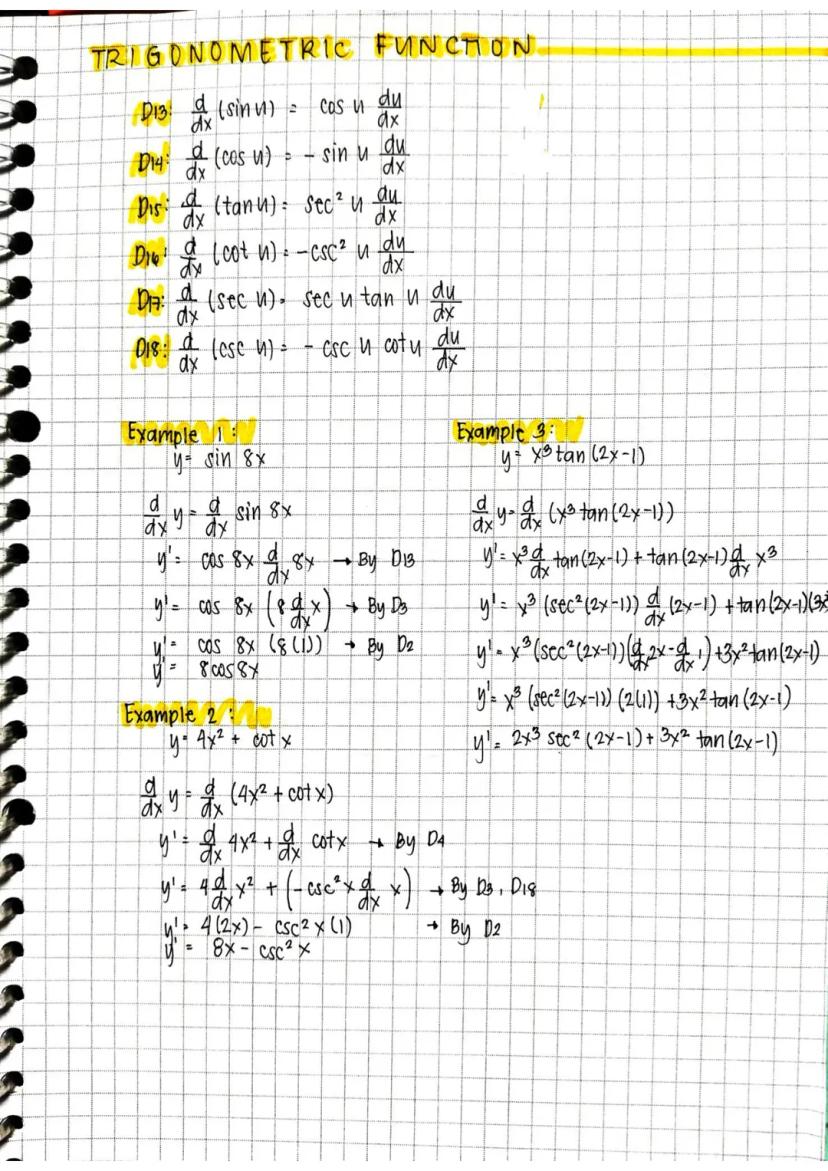 TRIGONOMETRIC FUNCTION
D13: d/dx (sin u) = cos u du/dx
D14: d/dx (cos u) = - sin u du/dx
D15: d/dx (tan u) = sec² u du/dx
D16: d/dx (cot u) = -csc² u du/dx
D17: d/dx (sec u) = sec u tan u du/dx
D18: d/dx (csc u) = - csc u cot u du/dx
Example 1:
y = sin 8x
d/dx y = d/dx sin 8x
y' = cos 8x d/dx 8x → By D13
y' = cos 8x (8 d/dx x) → By D3
y' = cos 8x (8(1)) → By D2
y' = 8 cos 8x
Example 2:
y = 4x² + cot x
d/dx y = d/dx (4x² + cot x)
y' = d/dx 4x² + d/dx cot x → By D4
y' = 4 d/dx x² + (-csc² x d/dx x) → By D3, D18
y' = 4(2x) - csc² x (1) → By D2
y' = 8x - csc² x
Example 3:
y = x³ tan (2x-1)
d/dx y = d/dx (x³ tan (2x-1))
y' = x³ d/dx tan (2x-1) + tan (2x-1) d/dx x³
y' = x³ (sec² (2x-1)) d/dx (2x-1) + tan (2x-1)(3x²
y' = x³ (sec² (2x-1)) (d/dx 2x - d/dx 1) + 3x² tan (2x-1)
y' = x³ (sec² (2x-1)) (2(1)) + 3x² tan (2x-1)
y' = 2x³ sec² (2x-1) + 3x² tan (2x-1)